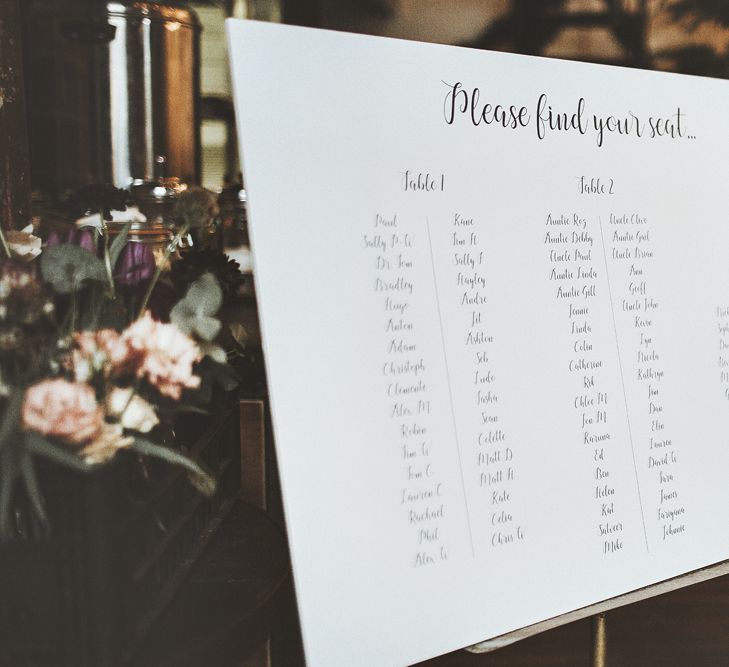 Please find your seat...
Table 1
Paul
Sally P-W
Dr. Tom
Bradley
Hugo
Anton
Adam
Christoph
Clemente
Alex M
Robin
Tim W
Tom C
Lauren C
Rachael
Phil
Alex W
Kane
Tom H
Sally F
Hayley
Andre
Jet
Ashton
Seb
Jude
Tasha
Sean
Colette
Matt D
Matt H
Kate
Celia
Chris W
Table 2
Auntie Roz
Auntie Debby
Uncle Paul
Auntie Linda
Auntie Gill
Jennie
Linda
Colin
Catherine
Rik
Chloe M
Jon M
Karuna
Ed
Ben
Helen
Kat
Satveer
Mike
Uncle Clive
Auntie Gail
Uncle Brian
Ann
Geoff
Uncle John
Kevin
Lyn
Nicola
Kathryn
Jim
Dan
Elin
Lauren
David W
Tara
James
Farzana
Johnnie